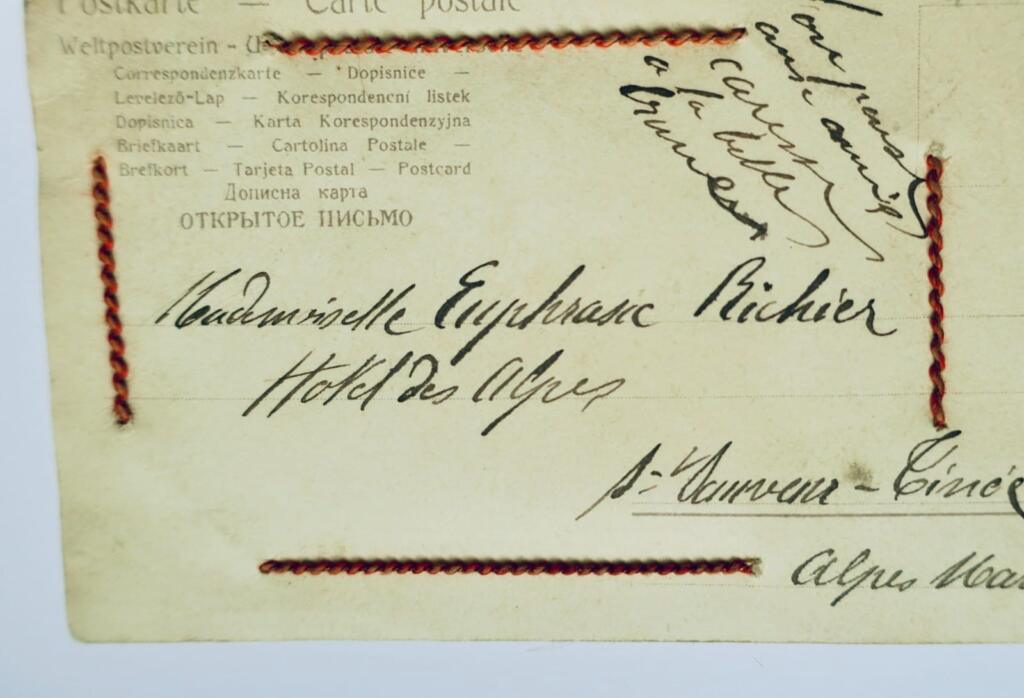 Postkarte — Carte postale
Weltpostverein -
Correspondenzkarte — Dopisnice —
Levelező-Lap — Korespondenční listek
Dopisnica — Karta Korespondenzyjna
Briefkaart — Cartolina Postale —
Brefkort — Tarjeta Postal — Postcard
Дописна карта
ОТКРЫТОЕ ПИСЬМО
caresse
à la belle
brune
Mademoiselle Euphrasie Richier
Hotel des Alpes
St Sauveur - Tinée
Alpes Mar